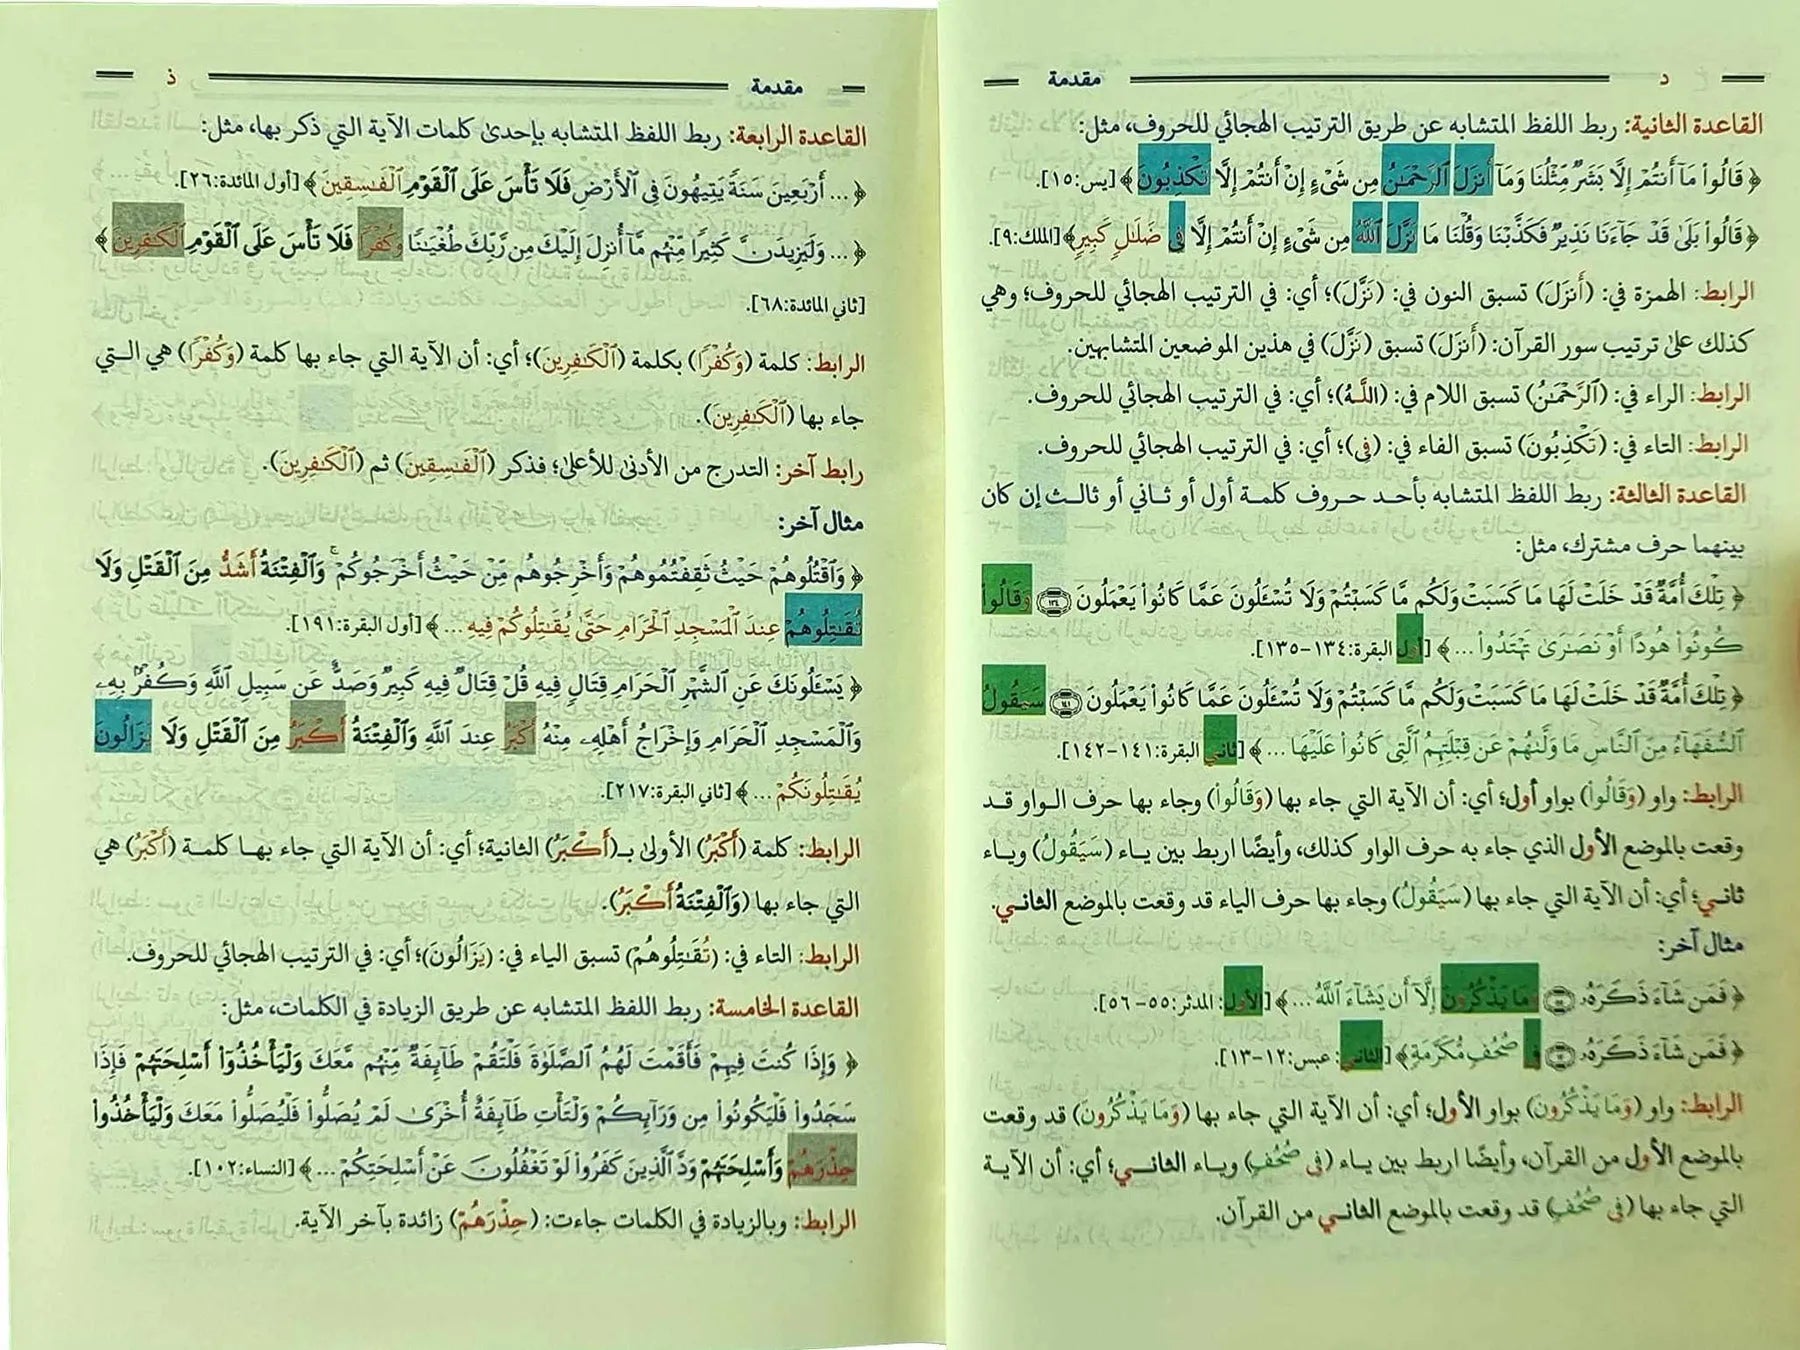 مقدمة د
القاعدة الثانية: ربط اللفظ المتشابه عن طريق الترتيب الهجائي للحروف، مثل:
﴿ قَالُواْ مَآ أَنتُمْ إِلَّا بَشَرٌ مِّثْلُنَا وَمَآ أَنزَلَ ٱلرَّحْمَـٰنُ مِن شَىْءٍ إِنْ أَنتُمْ إِلَّا تَكْذِبُونَ ﴾ [يس:١٥].
﴿ قَالُواْ بَلَىٰ قَدْ جَآءَنَا نَذِيرٌ فَكَذَّبْنَا وَقُلْنَا مَا نَزَّلَ ٱللَّهُ مِن شَىْءٍ إِنْ أَنتُمْ إِلَّا فِى ضَلَـٰلٍ كَبِيرٍ ﴾ [الملك:٩].
الرابط: الهمزة في: (أَنزَلَ) تسبق النون في: (نَزَّلَ)؛ أي: في الترتيب الهجائي للحروف؛ وهي
كذلك على ترتيب سور القرآن: (أَنزَلَ) تسبق (نَزَّلَ) في هذين الموضعين المتشابهين.
الرابط: الراء في: (ٱلرَّحْمَـٰنُ) تسبق اللام في: (اللَّهُ)؛ أي: في الترتيب الهجائي للحروف.
الرابط: التاء في: (تَكْذِبُونَ) تسبق الفاء في: (فِى)؛ أي: في الترتيب الهجائي للحروف.
القاعدة الثالثة: ربط اللفظ المتشابه بأحد حروف كلمة أول أو ثاني أو ثالث إن كان
بينهما حرف مشترك، مثل:
﴿ تِلْكَ أُمَّةٌ قَدْ خَلَتْ لَهَا مَا كَسَبَتْ وَلَكُم مَّا كَسَبْتُمْ وَلَا تُسْـَٔلُونَ عَمَّا كَانُواْ يَعْمَلُونَ ١٣٤ وَقَالُواْ
كُونُواْ هُودًا أَوْ نَصَـٰرَىٰ تَهْتَدُواْ ... ﴾ [أول البقرة:١٣٤-١٣٥].
﴿ تِلْكَ أُمَّةٌ قَدْ خَلَتْ لَهَا مَا كَسَبَتْ وَلَكُم مَّا كَسَبْتُمْ وَلَا تُسْـَٔلُونَ عَمَّا كَانُواْ يَعْمَلُونَ ١٤١ سَيَقُولُ
ٱلسُّفَهَآءُ مِنَ ٱلنَّاسِ مَا وَلَّىٰهُمْ عَن قِبْلَتِهِمُ ٱلَّتِى كَانُواْ عَلَيْهَا ... ﴾ [ثاني البقرة:١٤١-١٤٢].
الرابط: واو (وَقَالُواْ) بواو أول؛ أي: أن الآية التي جاء بها (وَقَالُواْ) وجاء بها حرف الواو قد
وقعت بالموضع الأول الذي جاء به حرف الواو كذلك، وأيضًا اربط بين ياء (سَيَقُولُ) وياء
ثاني؛ أي: أن الآية التي جاء بها (سَيَقُولُ) وجاء بها حرف الياء قد وقعت بالموضع الثاني.
مثال آخر:
﴿ فَمَن شَآءَ ذَكَرَهُۥ ٥٥ وَمَا يَذْكُرُونَ إِلَّآ أَن يَشَآءَ ٱللَّهُ ... ﴾ [الأول: المدثر:٥٥-٥٦].
﴿ فَمَن شَآءَ ذَكَرَهُۥ ١٢ فِى صُحُفٍ مُّكَرَّمَةٍ ﴾ [الثاني: عبس:١٢-١٣].
الرابط: واو (وَمَا يَذْكُرُونَ) بواو الأول؛ أي: أن الآية التي جاء بها (وَمَا يَذْكُرُونَ) قد وقعت
بالموضع الأول من القرآن، وأيضًا اربط بين ياء (فِى صُحُفٍ) وياء الثاني؛ أي: أن الآية
التي جاء بها (فِى صُحُفٍ) قد وقعت بالموضع الثاني من القرآن.
مقدمة ذ
القاعدة الرابعة: ربط اللفظ المتشابه بإحدى كلمات الآية التي ذكر بها، مثل:
﴿ ... أَرْبَعِينَ سَنَةً يَتِيهُونَ فِى ٱلْأَرْضِ فَلَا تَأْسَ عَلَى ٱلْقَوْمِ ٱلْفَـٰسِقِينَ ﴾ [أول المائدة:٢٦].
﴿ ... وَلَيَزِيدَنَّ كَثِيرًا مِّنْهُم مَّآ أُنزِلَ إِلَيْكَ مِن رَّبِّكَ طُغْيَـٰنًا وَكُفْرًا فَلَا تَأْسَ عَلَى ٱلْقَوْمِ ٱلْكَـٰفِرِينَ ﴾
[ثاني المائدة:٦٨].
الرابط: كلمة (وَكُفْرًا) بكلمة (ٱلْكَـٰفِرِينَ)؛ أي: أن الآية التي جاء بها كلمة (وَكُفْرًا) هي التي
جاء بها (ٱلْكَـٰفِرِينَ).
رابط آخر: التدرج من الأدنى للأعلى؛ فذكر (ٱلْفَـٰسِقِينَ) ثم (ٱلْكَـٰفِرِينَ).
مثال آخر:
﴿ وَٱقْتُلُوهُمْ حَيْثُ ثَقِفْتُمُوهُمْ وَأَخْرِجُوهُم مِّنْ حَيْثُ أَخْرَجُوكُمْ ۚ وَٱلْفِتْنَةُ أَشَدُّ مِنَ ٱلْقَتْلِ وَلَا
تُقَـٰتِلُوهُمْ عِندَ ٱلْمَسْجِدِ ٱلْحَرَامِ حَتَّىٰ يُقَـٰتِلُوكُمْ فِيهِ ... ﴾ [أول البقرة:١٩١].
﴿ يَسْـَٔلُونَكَ عَنِ ٱلشَّهْرِ ٱلْحَرَامِ قِتَالٍ فِيهِ قُلْ قِتَالٌ فِيهِ كَبِيرٌ وَصَدٌّ عَن سَبِيلِ ٱللَّهِ وَكُفْرٌۢ بِهِۦ
وَٱلْمَسْجِدِ ٱلْحَرَامِ وَإِخْرَاجُ أَهْلِهِۦ مِنْهُ أَكْبَرُ عِندَ ٱللَّهِ وَٱلْفِتْنَةُ أَكْبَرُ مِنَ ٱلْقَتْلِ وَلَا يَزَالُونَ
يُقَـٰتِلُونَكُمْ ... ﴾ [ثاني البقرة:٢١٧].
الرابط: كلمة (أَكْبَرُ) الأولى بـ(أَكْبَرُ) الثانية؛ أي: أن الآية التي جاء بها كلمة (أَكْبَرُ) هي
التي جاء بها (وَٱلْفِتْنَةُ أَكْبَرُ).
الرابط: التاء في: (تُقَـٰتِلُوهُمْ) تسبق الياء في: (يَزَالُونَ)؛ أي: في الترتيب الهجائي للحروف.
القاعدة الخامسة: ربط اللفظ المتشابه عن طريق الزيادة في الكلمات، مثل:
﴿ وَإِذَا كُنتَ فِيهِمْ فَأَقَمْتَ لَهُمُ ٱلصَّلَوٰةَ فَلْتَقُمْ طَآئِفَةٌ مِّنْهُم مَّعَكَ وَلْيَأْخُذُوٓاْ أَسْلِحَتَهُمْ فَإِذَا
سَجَدُواْ فَلْيَكُونُواْ مِن وَرَآئِكُمْ وَلْتَأْتِ طَآئِفَةٌ أُخْرَىٰ لَمْ يُصَلُّواْ فَلْيُصَلُّواْ مَعَكَ وَلْيَأْخُذُواْ
حِذْرَهُمْ وَأَسْلِحَتَهُمْ وَدَّ ٱلَّذِينَ كَفَرُواْ لَوْ تَغْفُلُونَ عَنْ أَسْلِحَتِكُمْ ... ﴾ [النساء:١٠٢].
الرابط: وبالزيادة في الكلمات جاءت: (حِذْرَهُمْ) زائدة بآخر الآية.